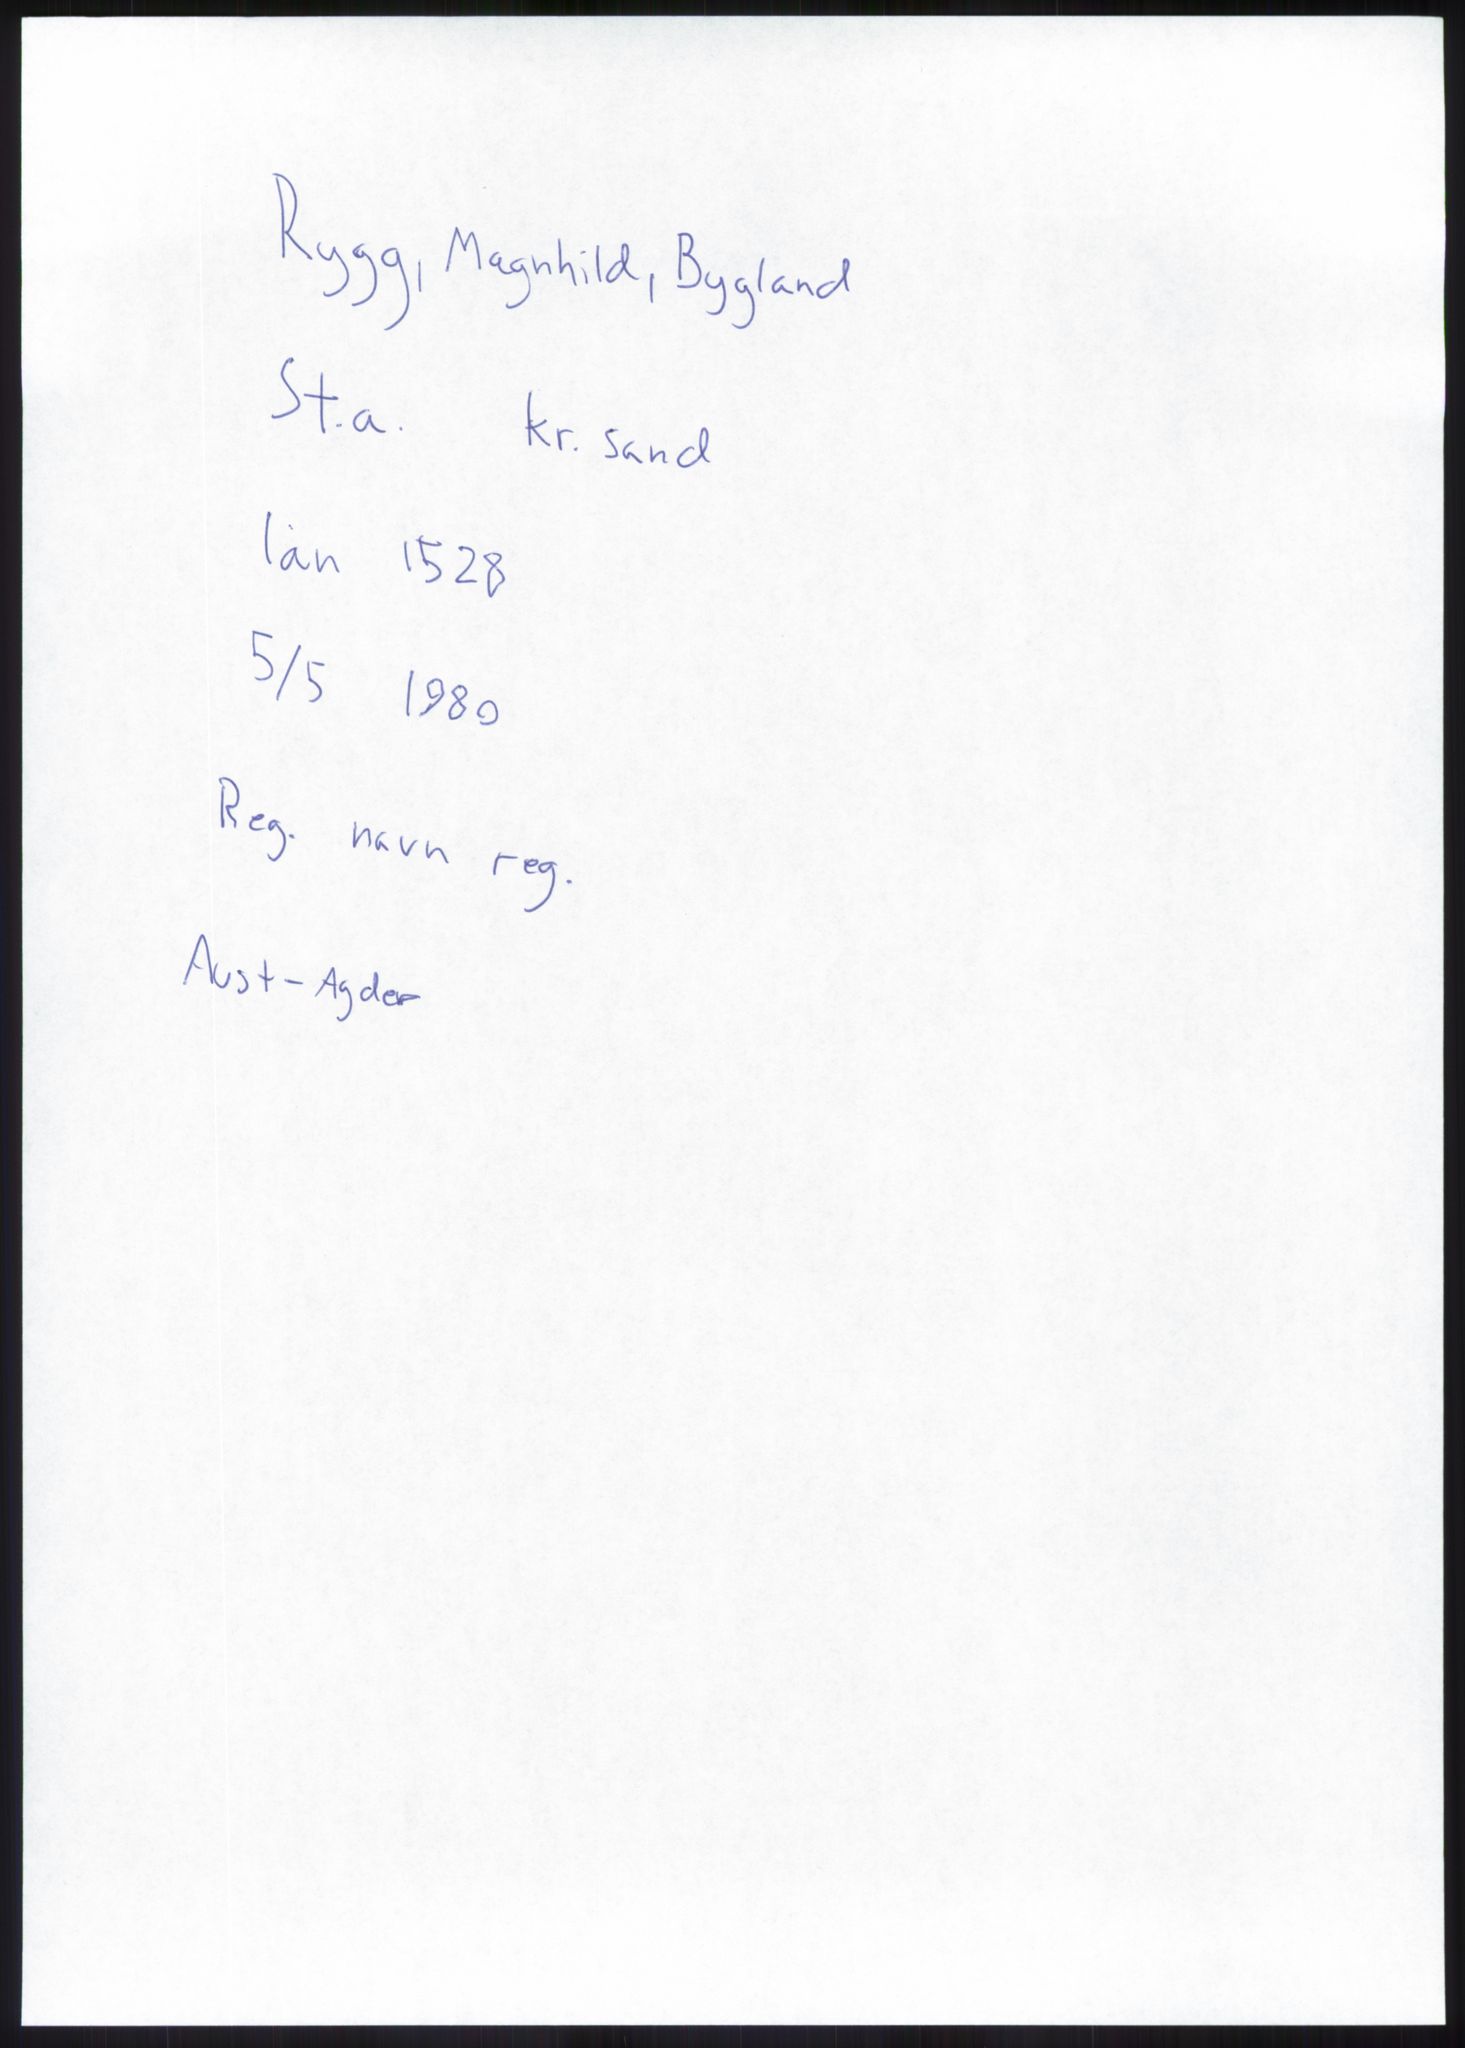 Rygg, Magnhild, Bygland
St.a. kr. sand
lån 1528
5/5 1980
Reg. navn reg.
Aust-Agder